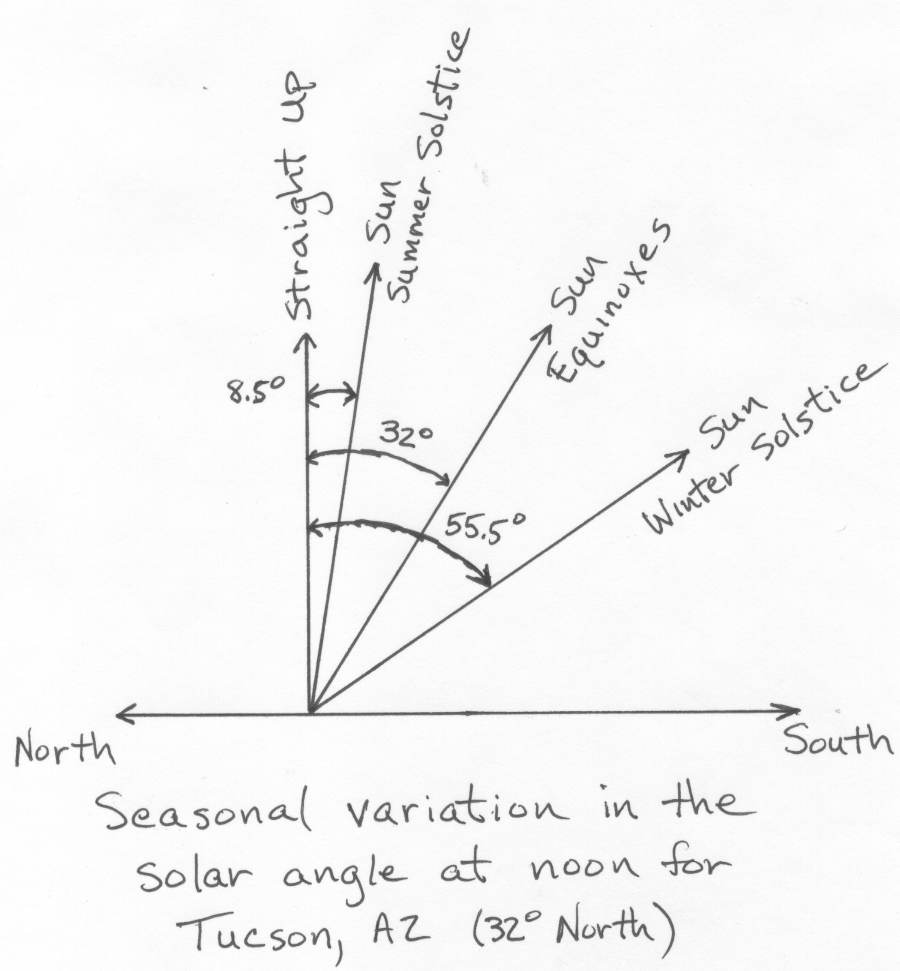 Straight Up
Sun
Summer Solstice
Sun
Equinoxes
8.5°
32°
Sun
Winter Solstice
55.5°
North
South
Seasonal variation in the
solar angle at noon for
Tucson, AZ (32° North)